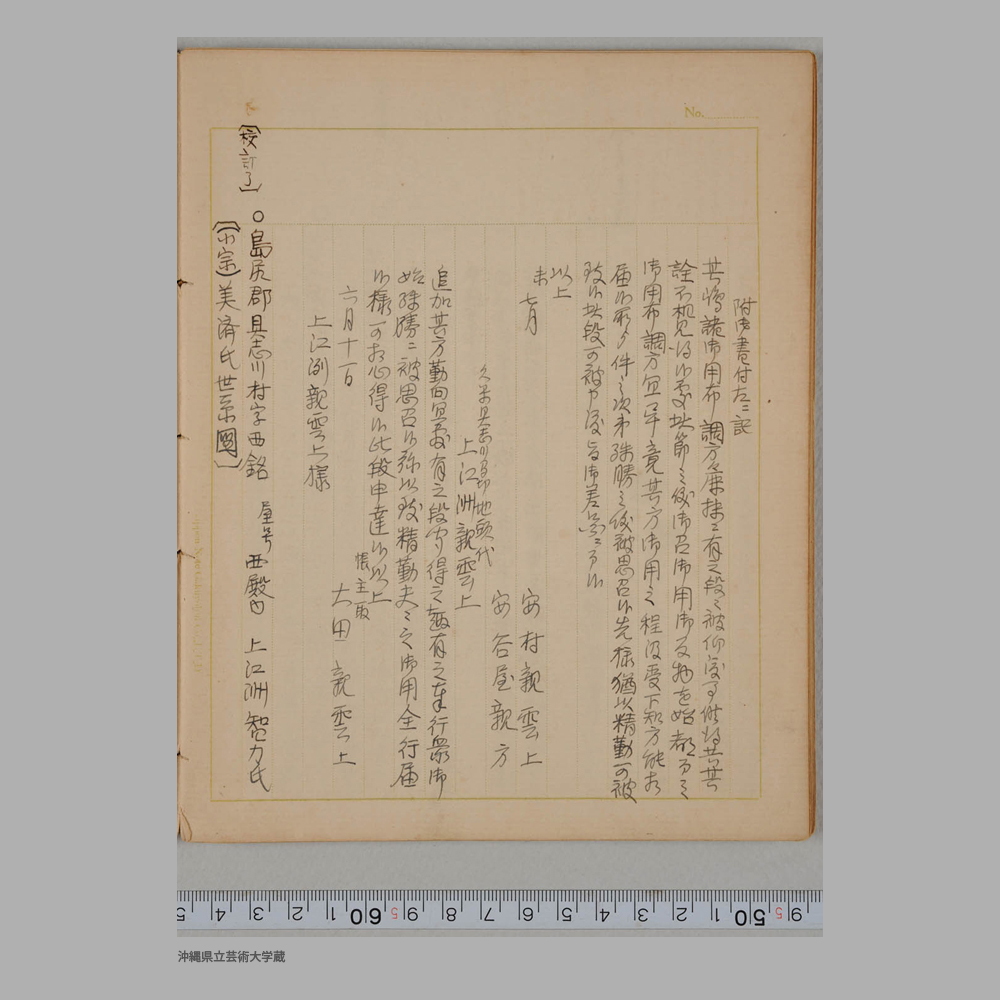 附御書付左ニ記
其嶋諸御用布調方麁抹ニ有之段々被仰渡事候得共其
詮不相見得候處此節之儀御召御用御反物を始都而之
御用布調方宜畢竟其方御用之程汲受下知方能相
届候所より件之次第殊勝之儀被思召候先様猶以精勤可被
致候此段可被申渡旨御差図ニ而候
以上
未七月
安村親雲上
安谷屋親方
久米具志川間切地頭代
上江洲親雲上
追加其方勤向宜敷有之段
始殊勝ニ被思召候弥以致精勤夫々之御用全行届
候様可相心得候此段申達候以上
六月十一日
帳主取
大田親雲上
上江洲親雲上様
(校訂了)
○島尻郡具志川村字西銘 屋号 西殿内 上江洲智力氏
(小宗)美済氏世系図
No.
沖縄県立芸術大学蔵